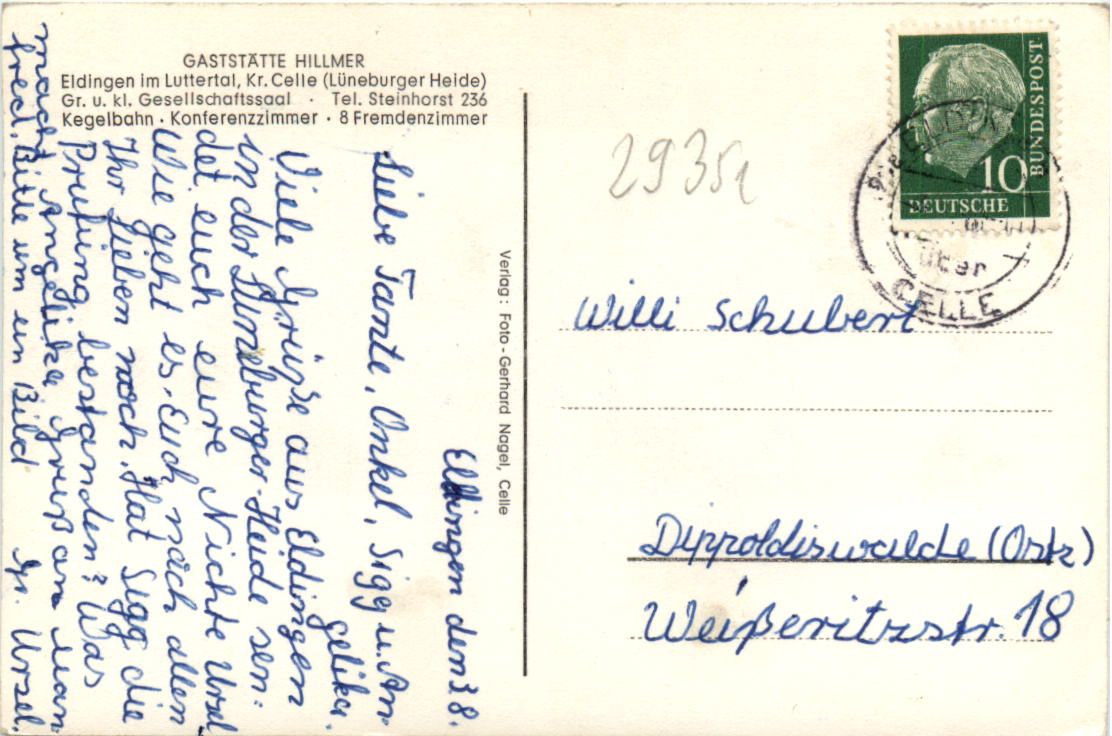 GASTSTÄTTE HILLMER
Eldingen im Luttertal, Kr. Celle (Lüneburger Heide)
Gr. u. kl. Gesellschaftssaal · Tel. Steinhorst 236
Kegelbahn · Konferenzzimmer · 8 Fremdenzimmer
Eldingen den 3.8.
Liebe Tante, Onkel, Sigg u. An-
gelika.
Viele Grüße aus Eldingen
in der Lüneburger-Heide sen-
det euch eure Nichte Ursel
Wie geht es Euch nach allen
Ihr Lieben noch. Hat Sigg die
Prüfung bestanden? Was
macht Angelika. Gruß an Man-
fred. Bitte um ein Bild Gr. Ursel.
Verlag: Foto-Gerhard Nagel, Celle
2935a
DEUTSCHE
BUNDESPOST
10
über
CELLE
Willi Schubert
Dippoldiswalde (Ostz)
Weißeritzstr. 18